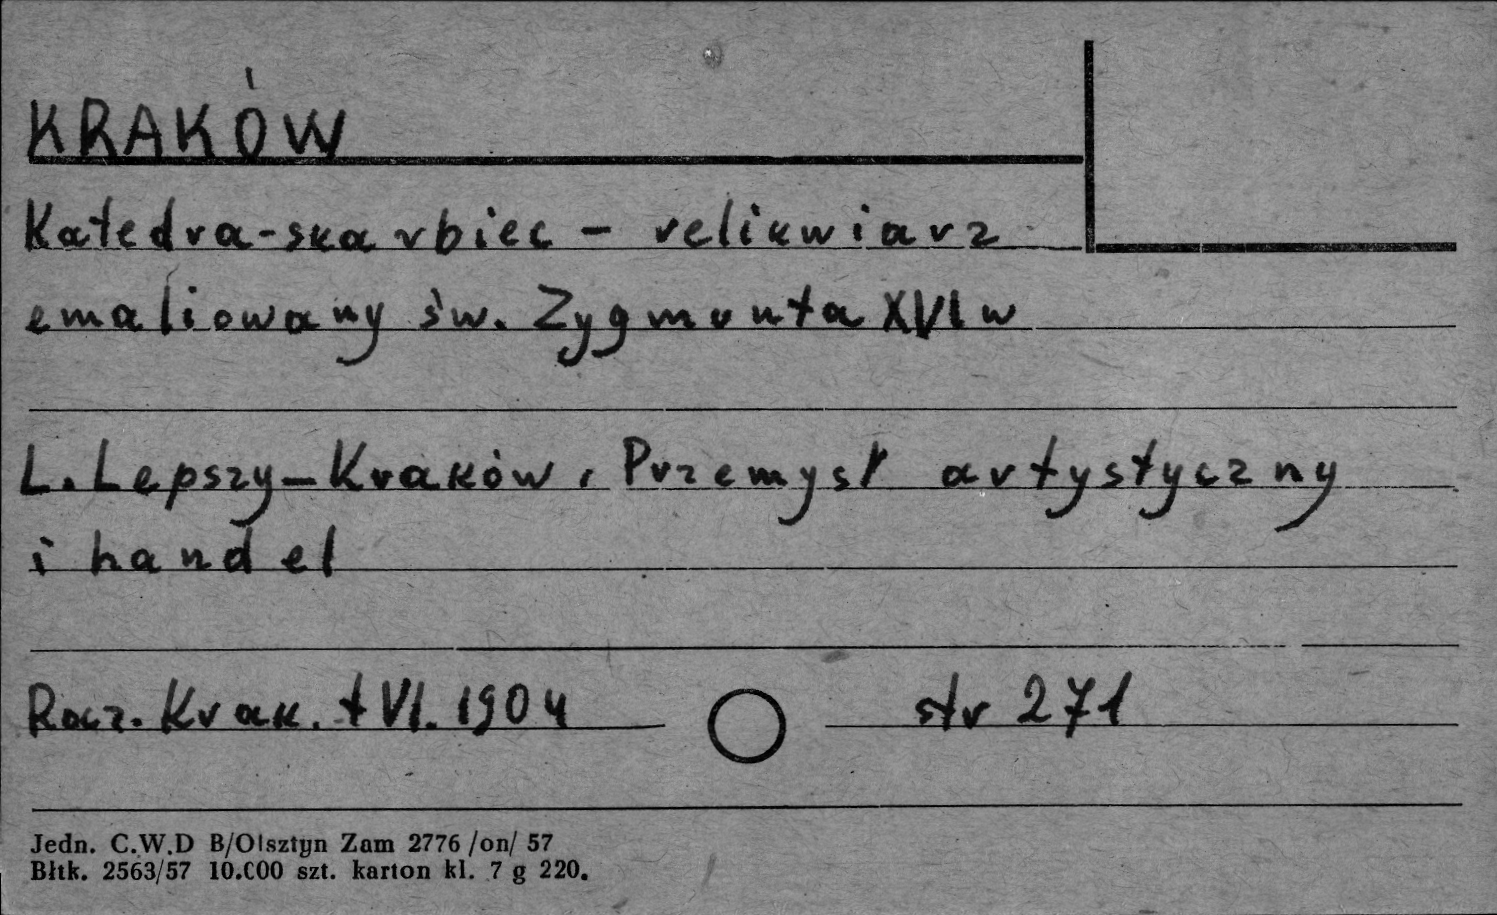 KRAKÓW
Katedra-skarbiec - relikwiarz
emaliowany św. Zygmunta XVI w
L. Lepszy-Kraków, Przemysł artystyczny
i handel
Rocz. Krak. t VI. 1904 str 271
Jedn. C.W.D B/Olsztyn Zam 2776 /on/ 57
Błtk. 2563/57 10.000 szt. karton kl. 7 g 220.